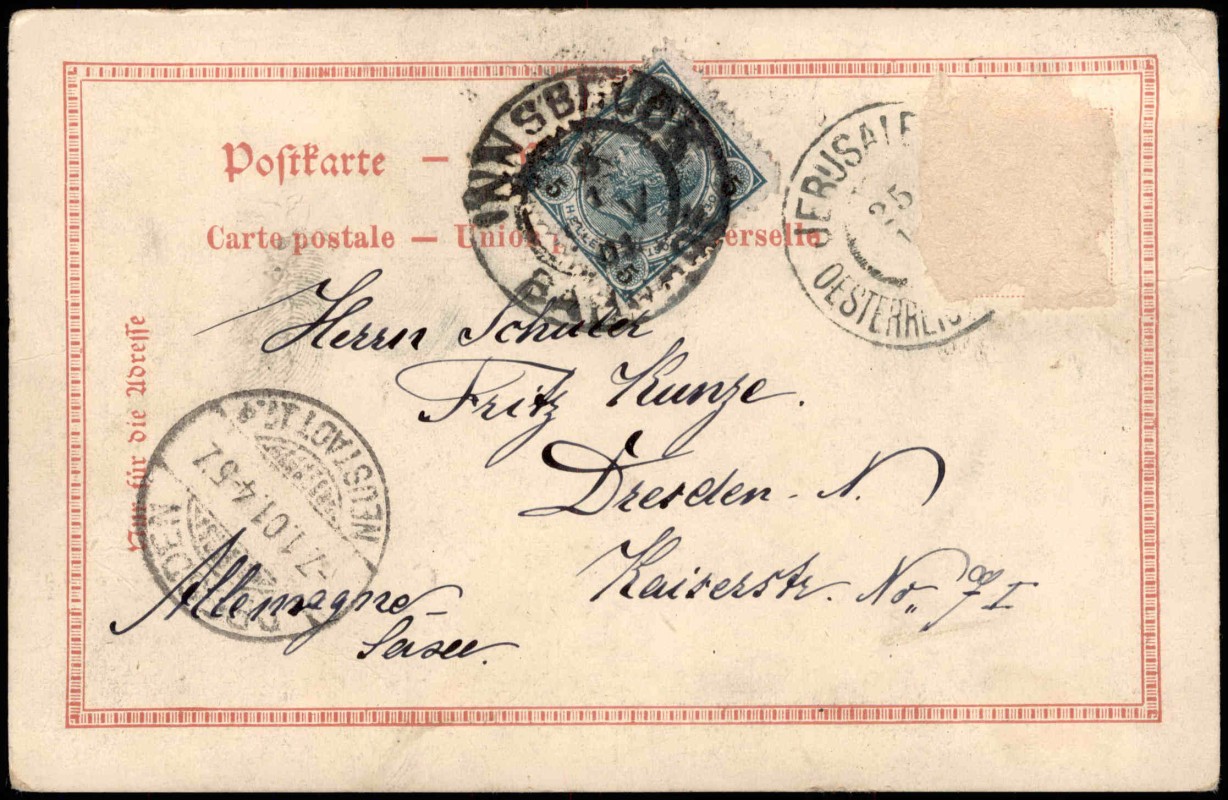 Postkarte —
Carte postale — Union erselle
Nur für die Adresse
INNSBRUCK
01
5
5
5
HELLER
JERUSALE
25
OESTERREIC
Herrn Schüler
Fritz Kunze.
Dresden - N.
Kaiserstr. No. 7 I
Allemagne
NEUSTADT 10.g.
-7.1.01.4-5 Z
DRESDEN